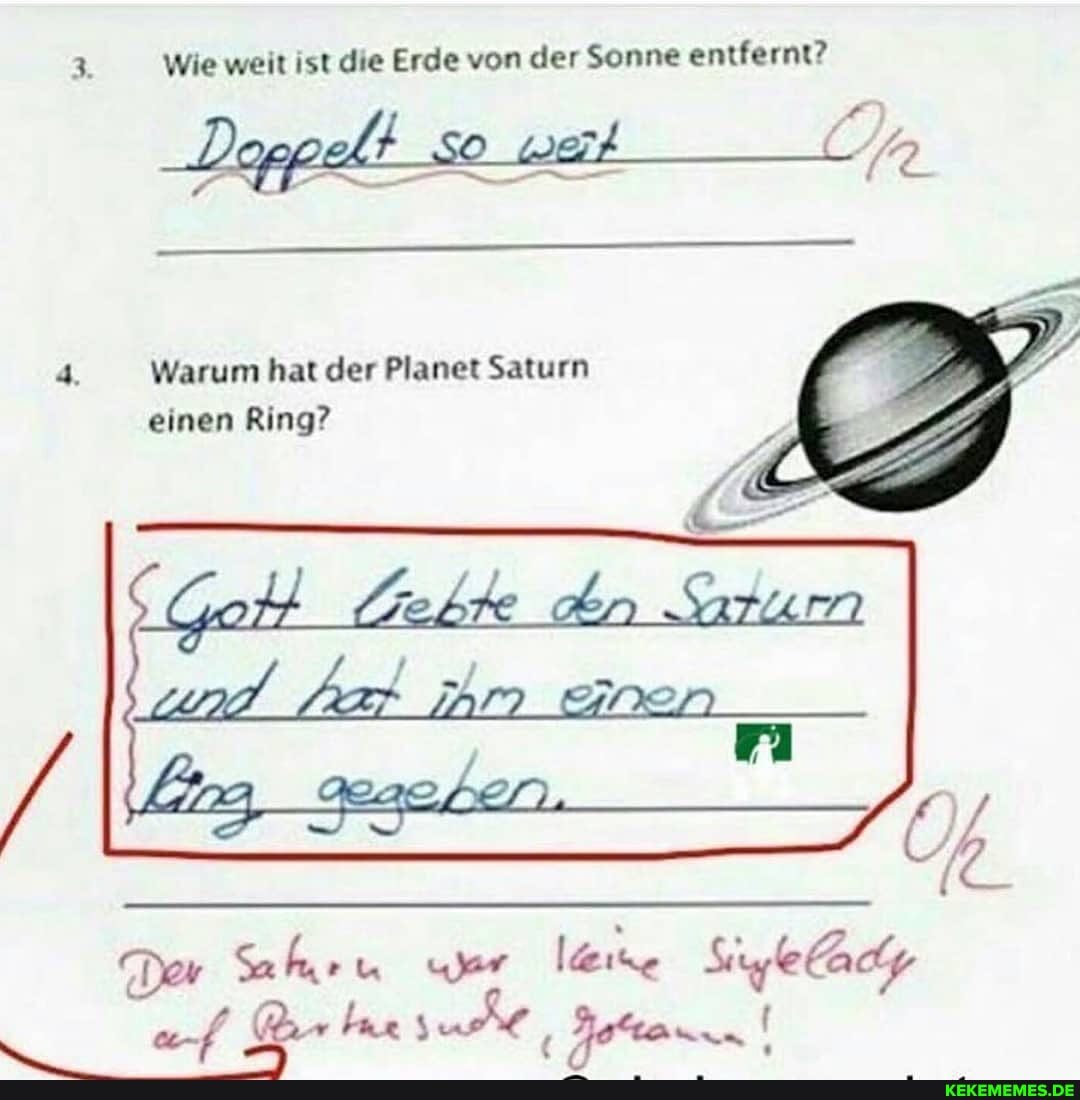 3. Wie weit ist die Erde von der Sonne entfernt?
Doppelt so weit 0/2
4. Warum hat der Planet Saturn
einen Ring?
Gott liebte den Saturn
und hat ihm einen
Ring gegeben.
0/2
Der Saturn war keine Singlelady
auf Partnersuche, Johanna!
KEKEMEMES.DE